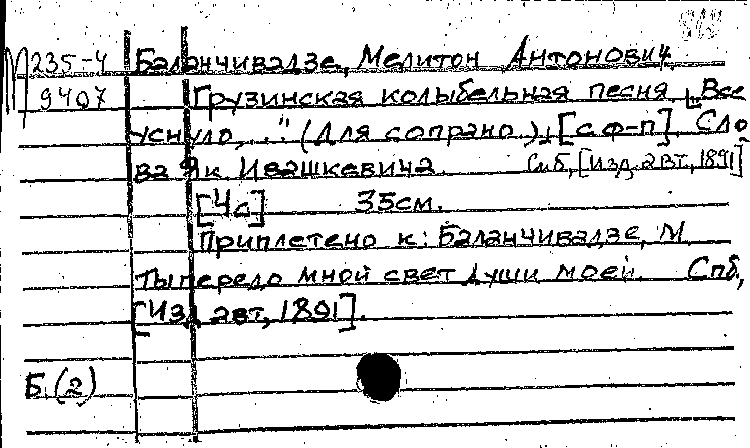 М 235-4 Баланчивадзе, Мелитон Антонович
9407 Грузинская колыбельная песня „Все
уснуло,..." (Для сопрано), [с ф-п]. Сло
ва Як. Ивашкевича. Спб, [Изд. авт, 1891]
[4с] 35см.
Приплетено к: Баланчивадзе, М.
Ты передо мной свет души моей. Спб,
[Изд авт, 1891].
Б.(2)